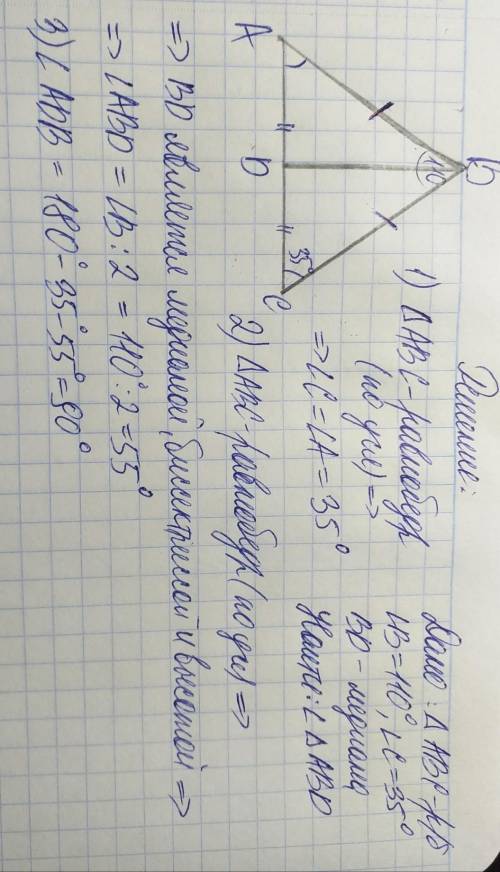 Решение:
Дано: ΔABC-р/б
∠B=110°, ∠C=35°
BD-медиана
Найти: ∠ΔABD
A
B
C
D
110
35°
1) ΔABC-равнобедр
(по усл) =>
=> ∠C=∠A=35°
2) ΔABC-равнобедр (по усл) =>
=> BD является медианой, биссектрисой и высотой =>
=> ∠ABD = ∠B:2 = 110°:2=55°
3) ∠ADB = 180°-35°-55°=90°